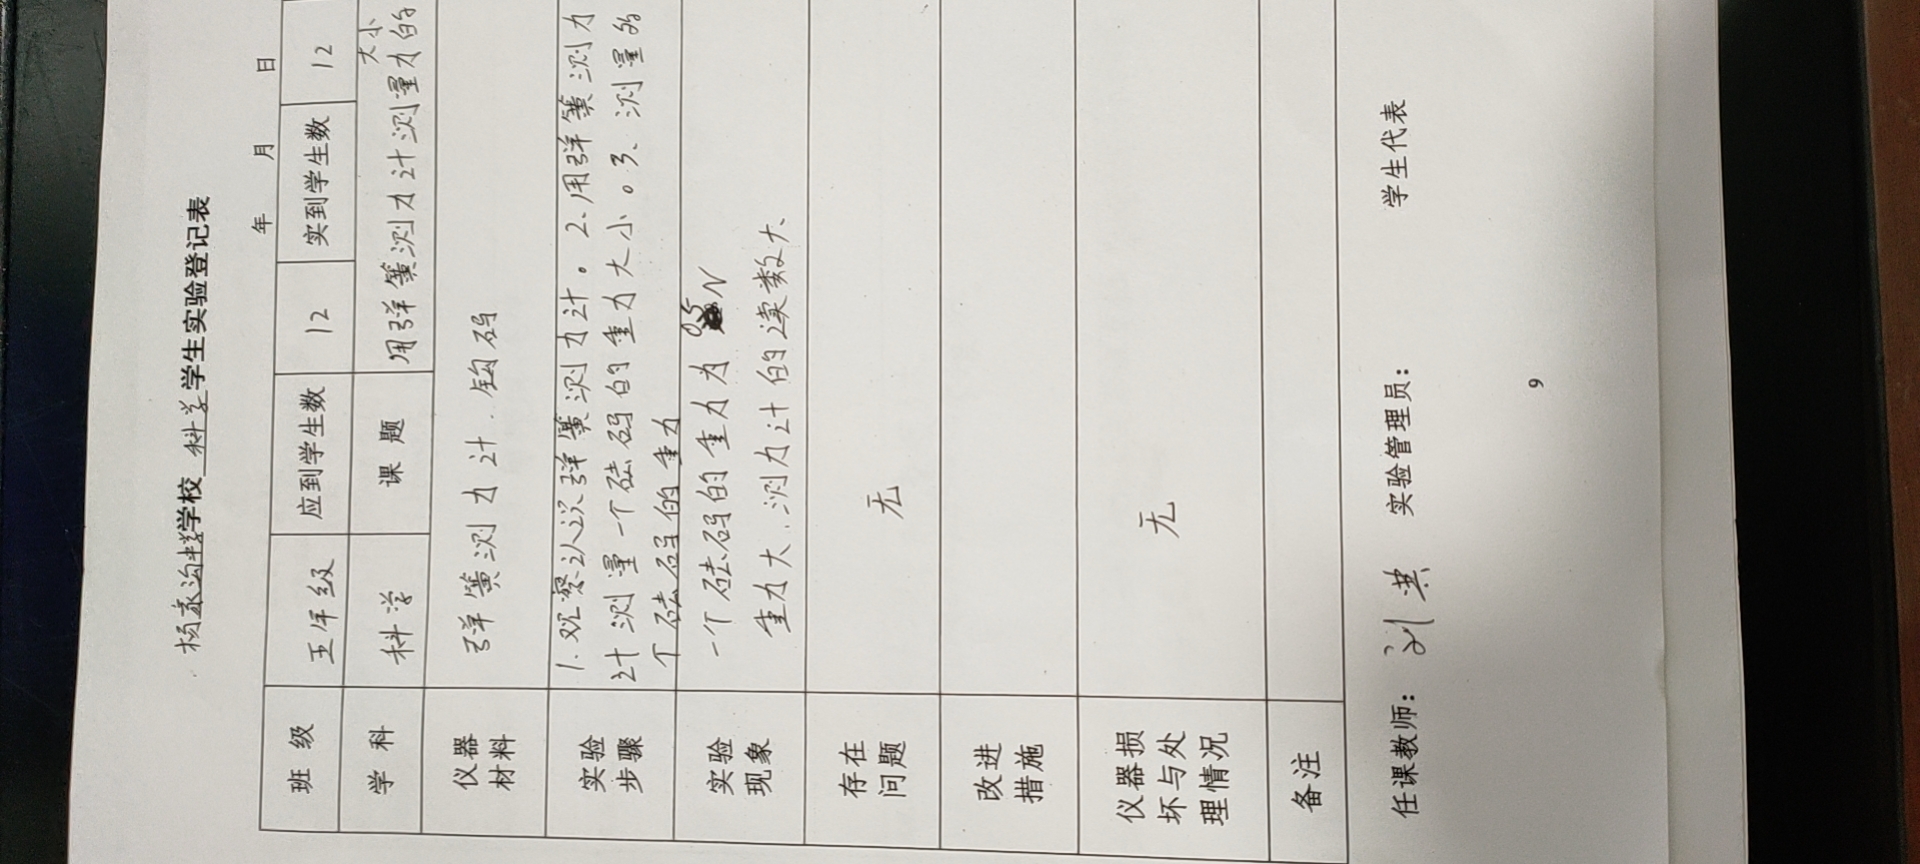 杨家沟学校 科学 学生实验登记表
年 月 日
班 级 五年级 应到学生数 12 实到学生数 12
学 科 科学 课 题 用弹簧测力计测量力的大小
仪器材料 弹簧测力计. 钩码
实验步骤 1.观察认识弹簧测力计。2.用弹簧测力
计测量一个砝码的重力大小。3、测量的
个砝码的重力
实验现象 一个砝码的重力为 05N
重力大.测力计的读数大
存在问题 无
改进措施
仪器损坏与处理情况 无
备注
任课教师: 刘 实验管理员: 学生代表
9